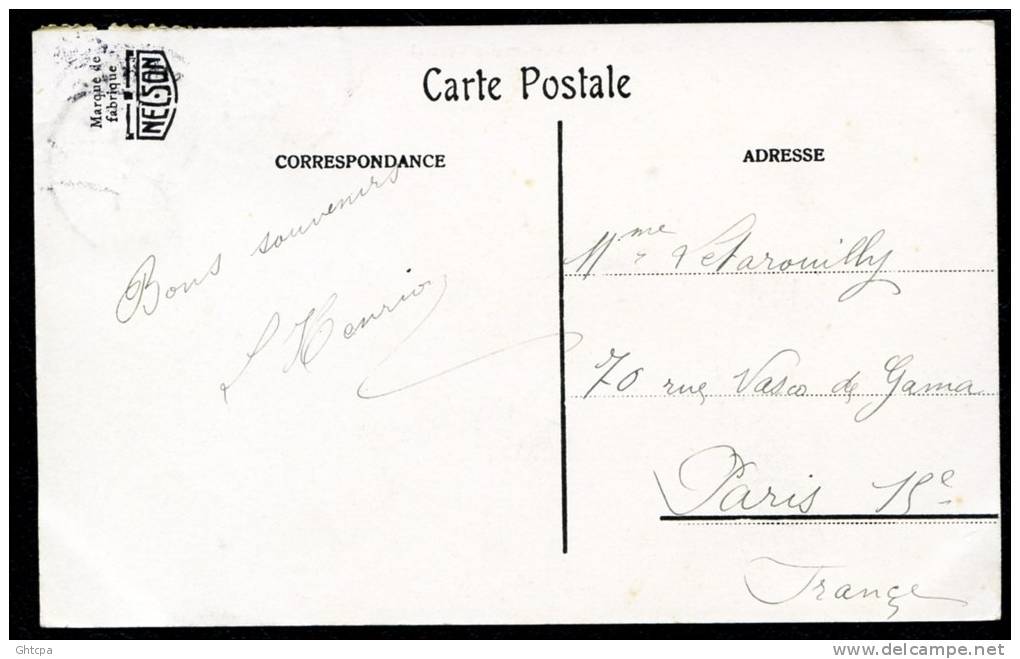 Marque de
fabrique
NELSON
Carte Postale
CORRESPONDANCE
ADRESSE
Bons souvenirs
Mme Letarouilly
70 rue Vasco de Gama
Paris 15e
France
Ghtcpa
www.delcampe.net